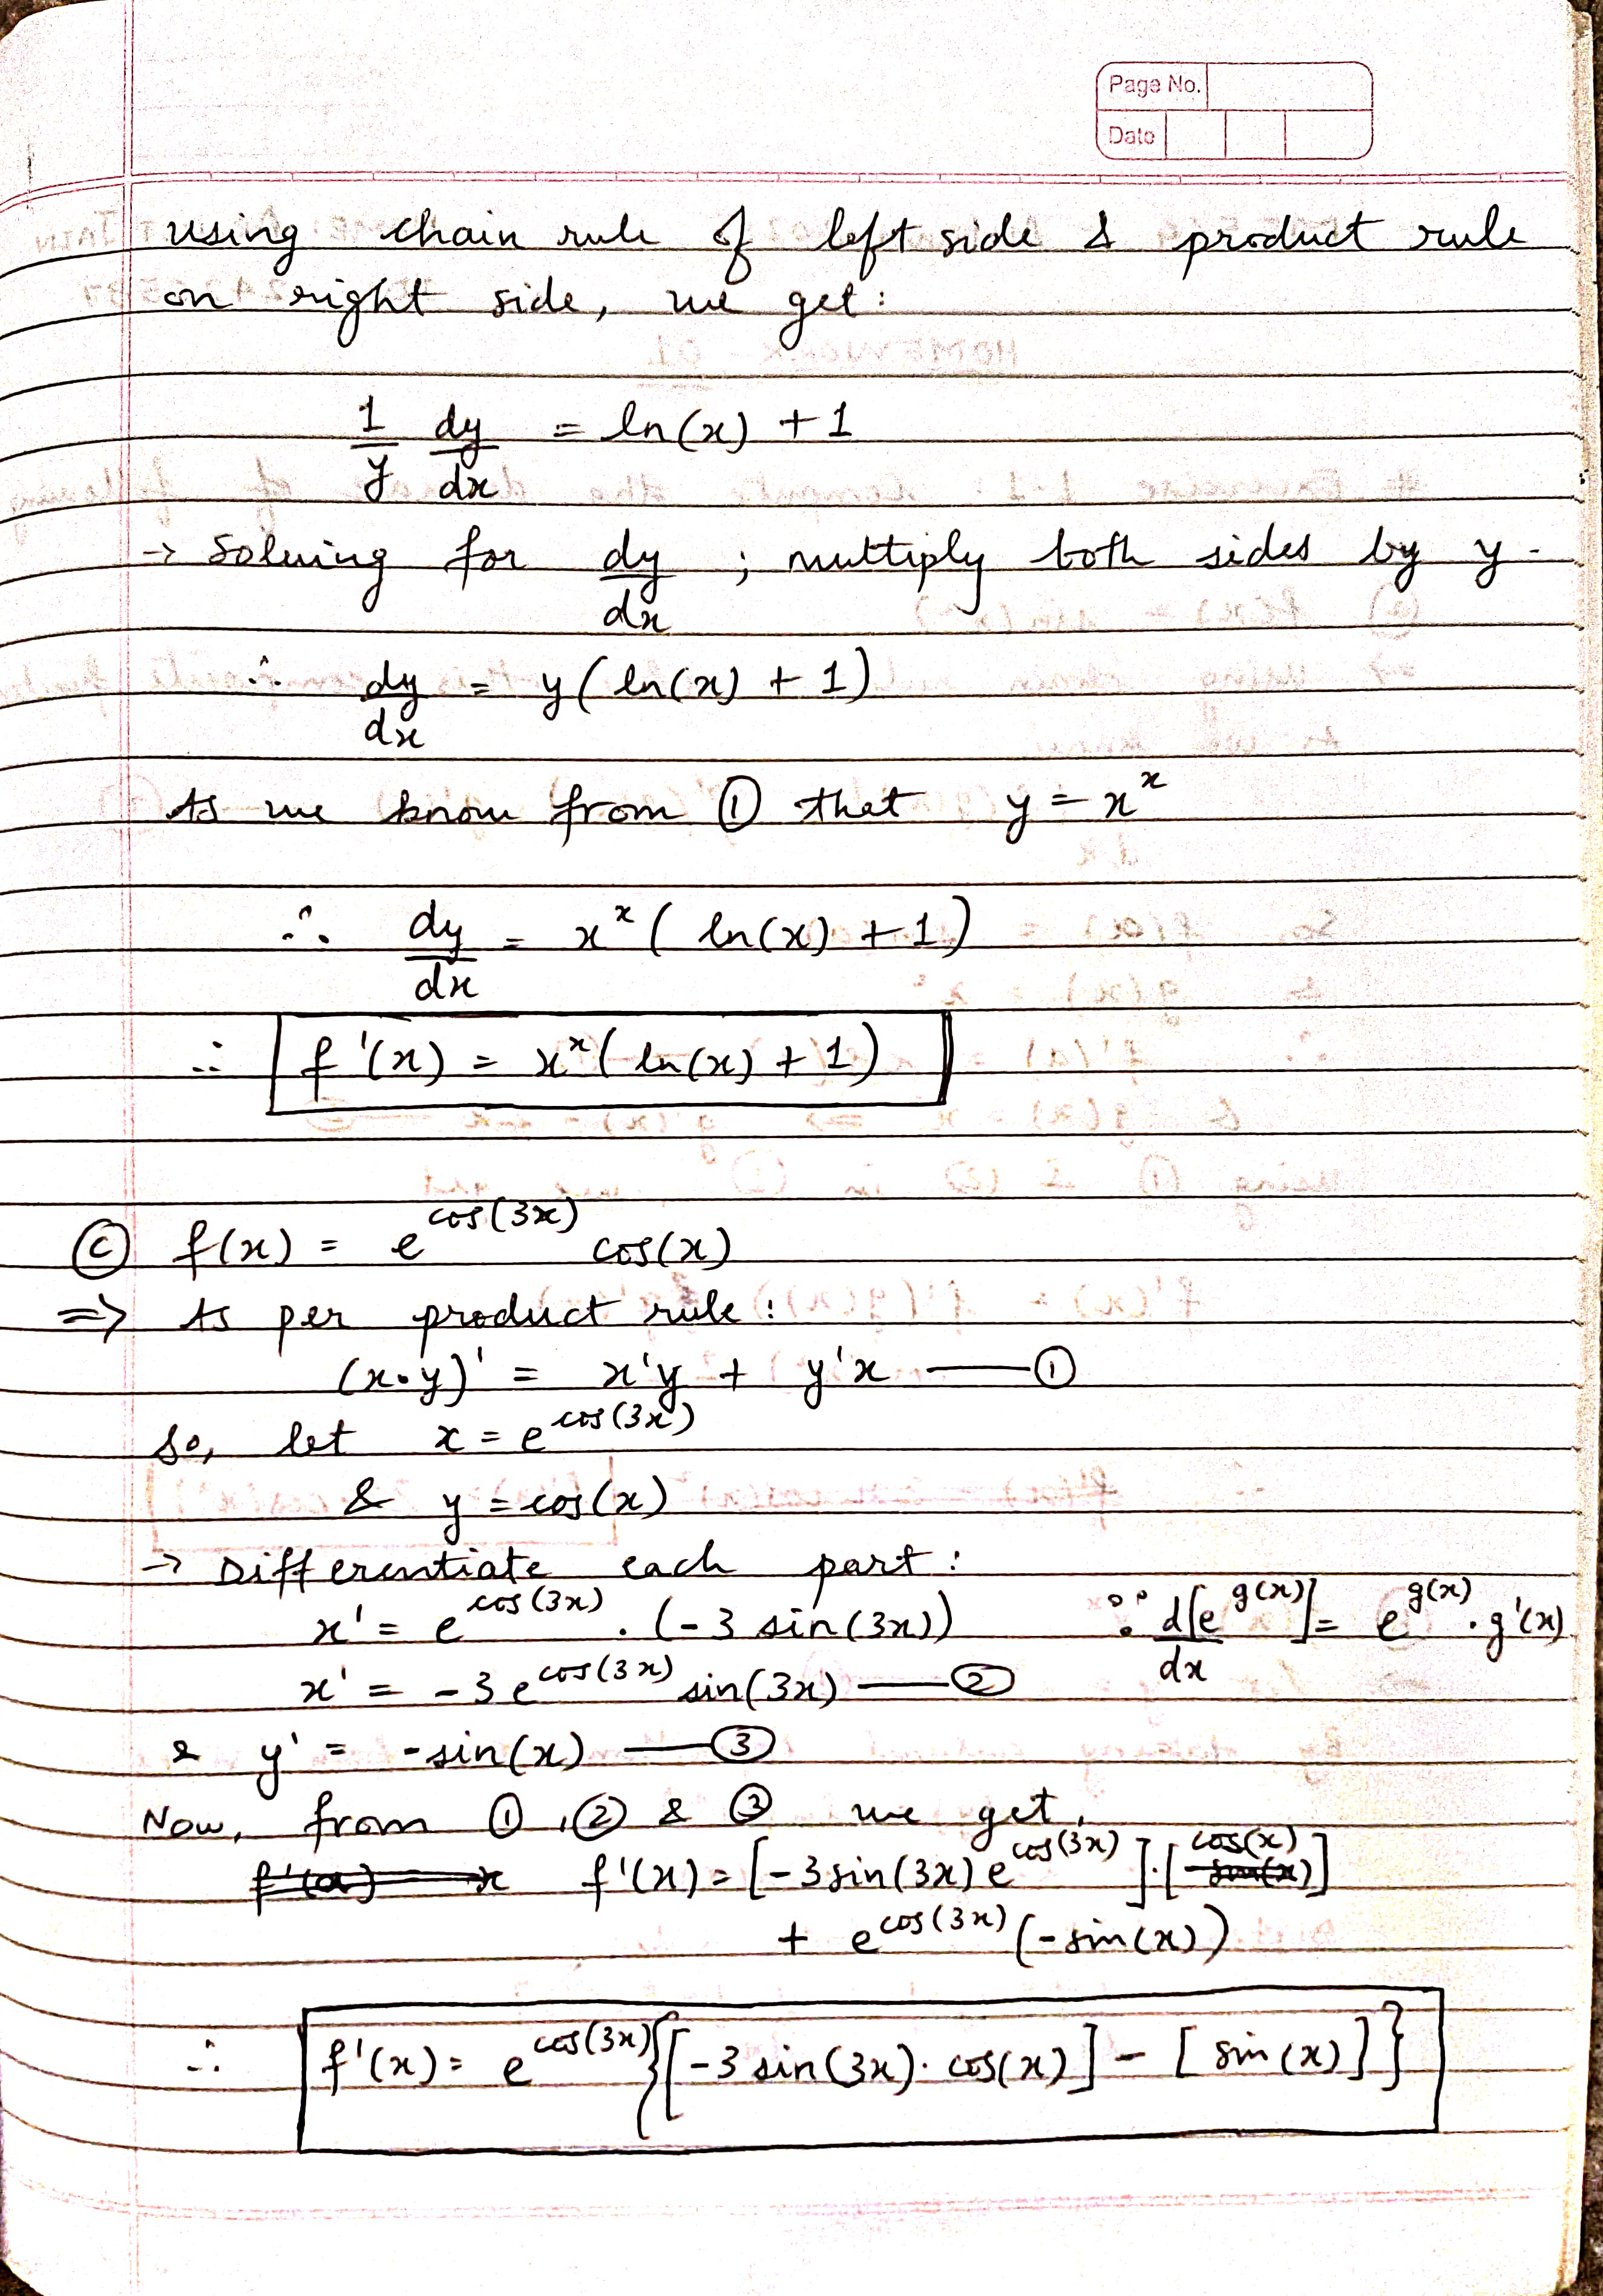 Page No.
Date
using chain rule of left side & product rule
on right side, we get:
1/y dy/dx = ln(x) + 1
→ Solving for dy/dx ; multiply both sides by y.
∴ dy/dx = y(ln(x) + 1)
As we know from ① that y = x^x
∴ dy/dx = x^x(ln(x) + 1)
∴ f'(x) = x^x(ln(x) + 1)
Ⓒ f(x) = e^cos(3x) cos(x)
⇒ As per product rule:
(x·y)' = x'y + y'x —— ①
So, let x = e^cos(3x)
& y = cos(x)
→ Differentiate each part:
x' = e^cos(3x) · (-3 sin(3x)) ∵ d/dx[e^g(x)] = e^g(x) · g'(x)
x' = -3 e^cos(3x) sin(3x) —— ②
& y' = -sin(x) —— ③
Now, from ①, ② & ③ we get,
f'(x) = [-3 sin(3x) e^cos(3x)]·[cos(x)]
+ e^cos(3x) (-sin(x))
∴ f'(x) = e^cos(3x) {[-3 sin(3x)· cos(x)] - [sin(x)]}